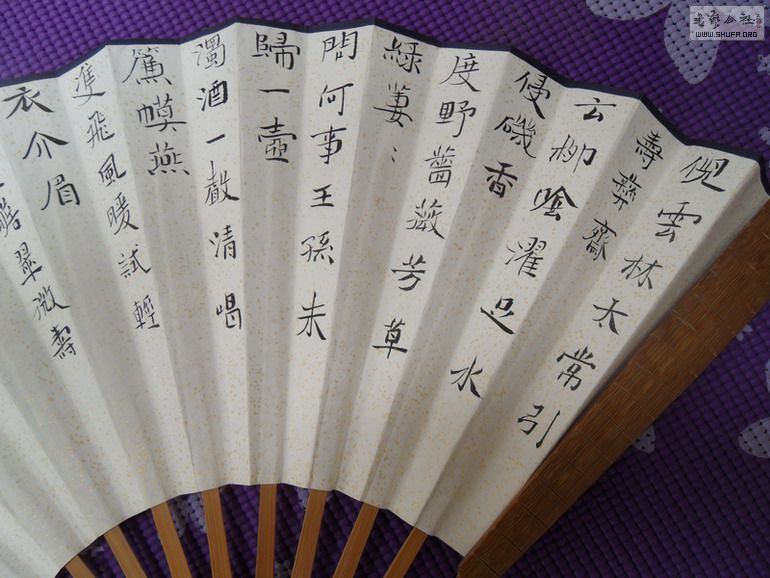 倪雲林太常引
壽彝齋
云柳陰濯足水
侵磯香
度野薔薇芳草
綠萋⺀
問何事王孫未
歸一壺
濁酒一聲清唱
簾幙燕
雙飛風暖試輕
衣介眉
瞻翠微壽
WWW.SHUFA.ORG